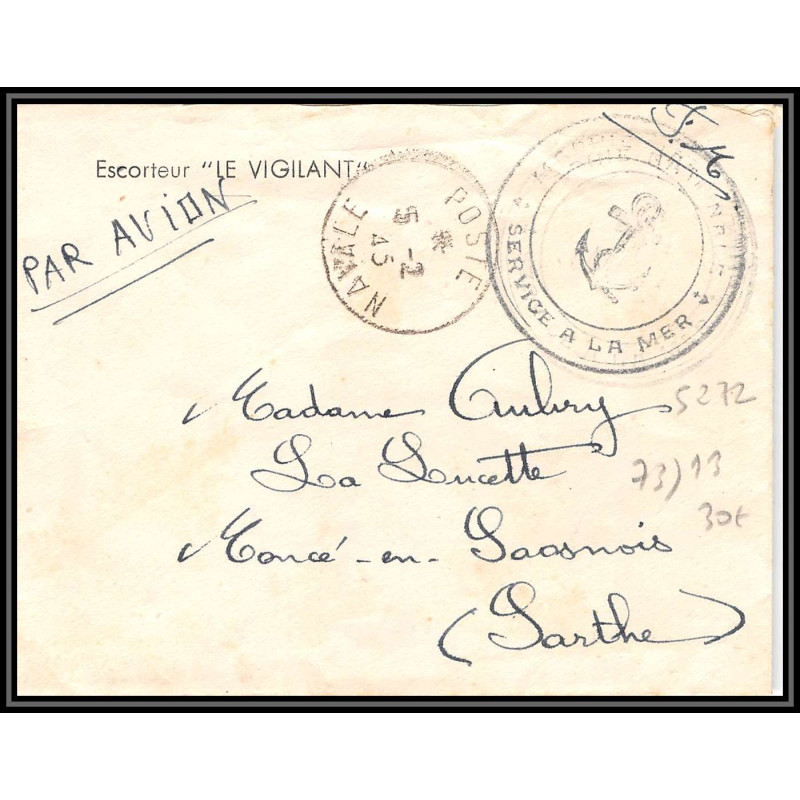 F.M.
Escorteur "LE VIGILANT"
PAR AVION
POSTE NAVALE
5-2
45
MARINE NATIONALE
SERVICE A LA MER
Madame Aubry
5272
La Lucette
73)13
30€
Moncé-en-Saosnois
(Sarthe)